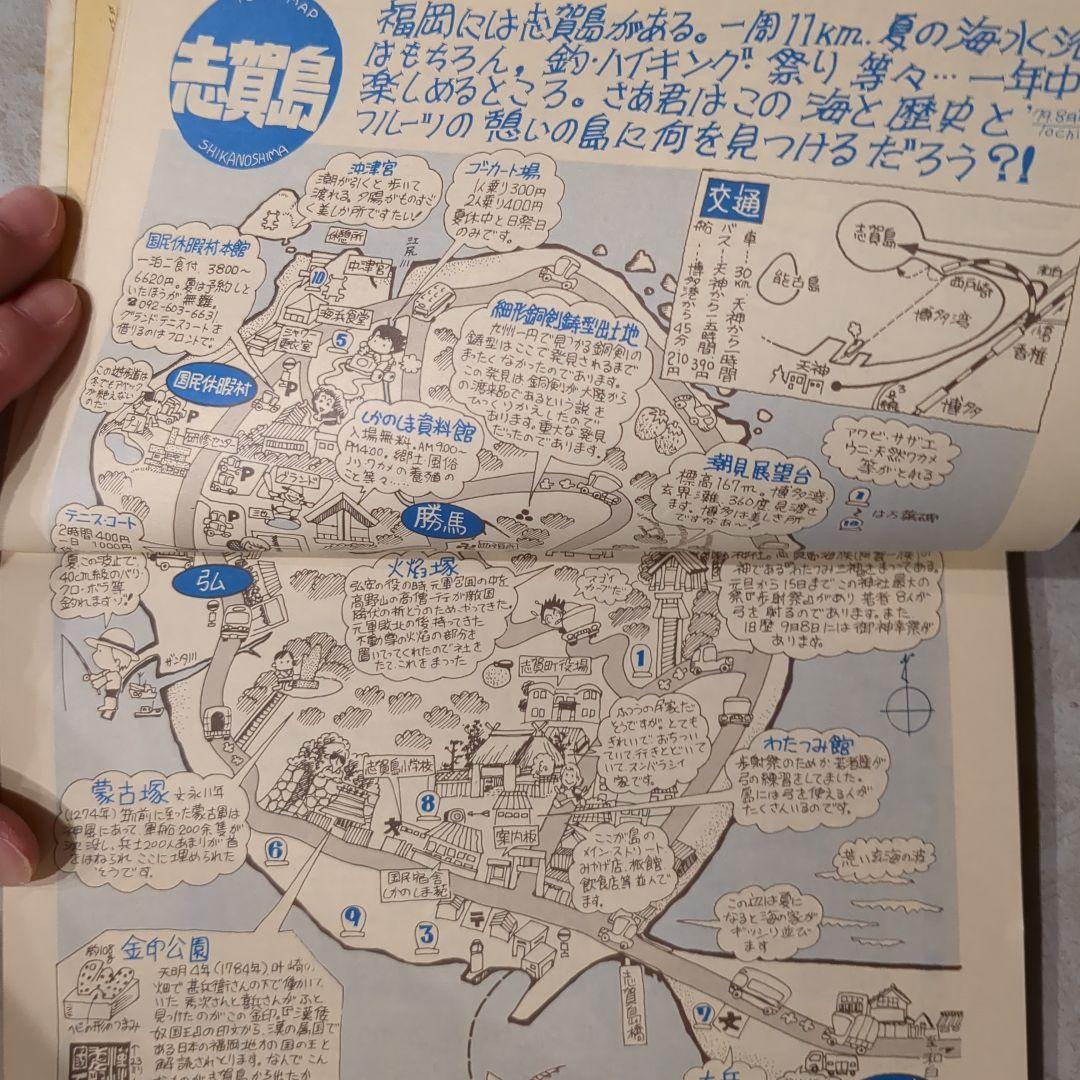 志賀島
SHIKANOSHIMA
福岡には志賀島がある。一周11km.夏の海水
はもちろん,釣・ハイキング・祭り 等々…一年中
楽しめるところ。さあ君はこの海と歴史と
フルーツの憩いの島に何を見つけるだろう?!
沖津宮
潮が引くと歩いて
渡れる。夕陽がものすご
く美しか所ですたい!
ゴーカート場
1人乗り300円
2人乗り400円
夏休中と日祭日
のみです。
交通
車…30km.天神から一時間
バス…天神から一時間
390円
船…博多港から45分
210円
志賀島
能古島
西戸崎
博多湾
香椎
天神
博多
国民休暇村本館
一泊二食付. 3800〜
6620円。夏は予約し
といたほうが無難
☎092-603-6631
グランド・テニスコートを
借りるのはフロントで
休憩所
中津宮
10
海浜食堂
シャワー
更衣室
5
国民休暇村
研修センター
P
グランド
細形銅剣鋳型出土地
九州一円で見つかる銅剣の
鋳型はここで発見されるまで
まったくなかったのであります。
この発見は銅剣が大陸から
の渡来品であるという説を
ひっくりかえしたので
あります。重大な発見
だったのであります。
しかのしま資料館
入場無料。AM9:00〜
PM4:00。郷土・風俗
ノリ.ワカメの養殖の
こと等々……
潮見展望台
標高167m。博多湾
玄界灘、360度見渡せ
ます。博多は美しき所
ですなあ〜
アワビ・サザエ
ウニ・天然ワカメ
等がとれる
勝馬
テニス・コート
2時間400円
一日 1000円
夏、この波止で、
40cm級のバリ・
クロ・ボラ等
釣れますゾ!!
弘
火焰塚
弘安の役の時 元軍包囲の中を
高野山の高僧一行が敵国
降伏の祈とうのためやってきた。
元軍敗北の後 持ってきた
不動尊の火焰の部分を
置いてってくれたので社を
たて、これをまつった
スゴイ
カーブだ
の神である"わたつみ三神をまつってある。
元旦から15日まで この神社最大の
祭『歩射祭』があり 若者8人が
弓を射るのであります。また、
旧歴9月8日には御神幸祭が
あります。
1
志賀町役場
ふつうの民家だ
そうですが、とても
きれいで、おちつい
ていて、行きとどいて
いて、スンバラシイ
家です。
わたつみ館
歩射祭のためか 若者達が
弓の練習をしてました。
島には弓を使える人が
たくさんいるのです。
志賀島小学校
8
案内板
ここが島の
メイン・ストリート
みやげ店、旅館
飲食店等並んで
ます。
国民宿舎
しかのしま苑
蒙古塚 文永11年
(1274年) 筑前に至った蒙古軍は
神風にあって、軍船200余隻が
沈没し、兵士200人あまりが首
をはねられ ここに埋められた
そうです。
6
9
3
〒
荒い玄海の波
この辺は夏に
なると海の家が
ギッシリ並び
ます
志賀島橋
7
金印公園
約108g
ヘビの形のつまみ
天明4年(1784年)、叶崎の
畑で甚兵衛さんの下で働いて
いた秀次さんと喜兵さんがふと
見つけたのがこの金印。『漢倭
奴国王』の印文から、漢の属国で
ある日本の福岡地方の国の王と
解読されとります。なんで こん